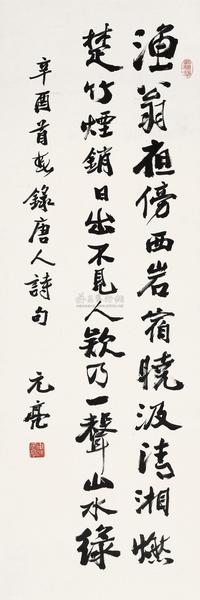 渔翁夜傍西岩宿晓汲清湘燃
楚竹煙銷日出不見人欵乃一聲山水綠
辛酉首夏錄唐人詩句
元亮